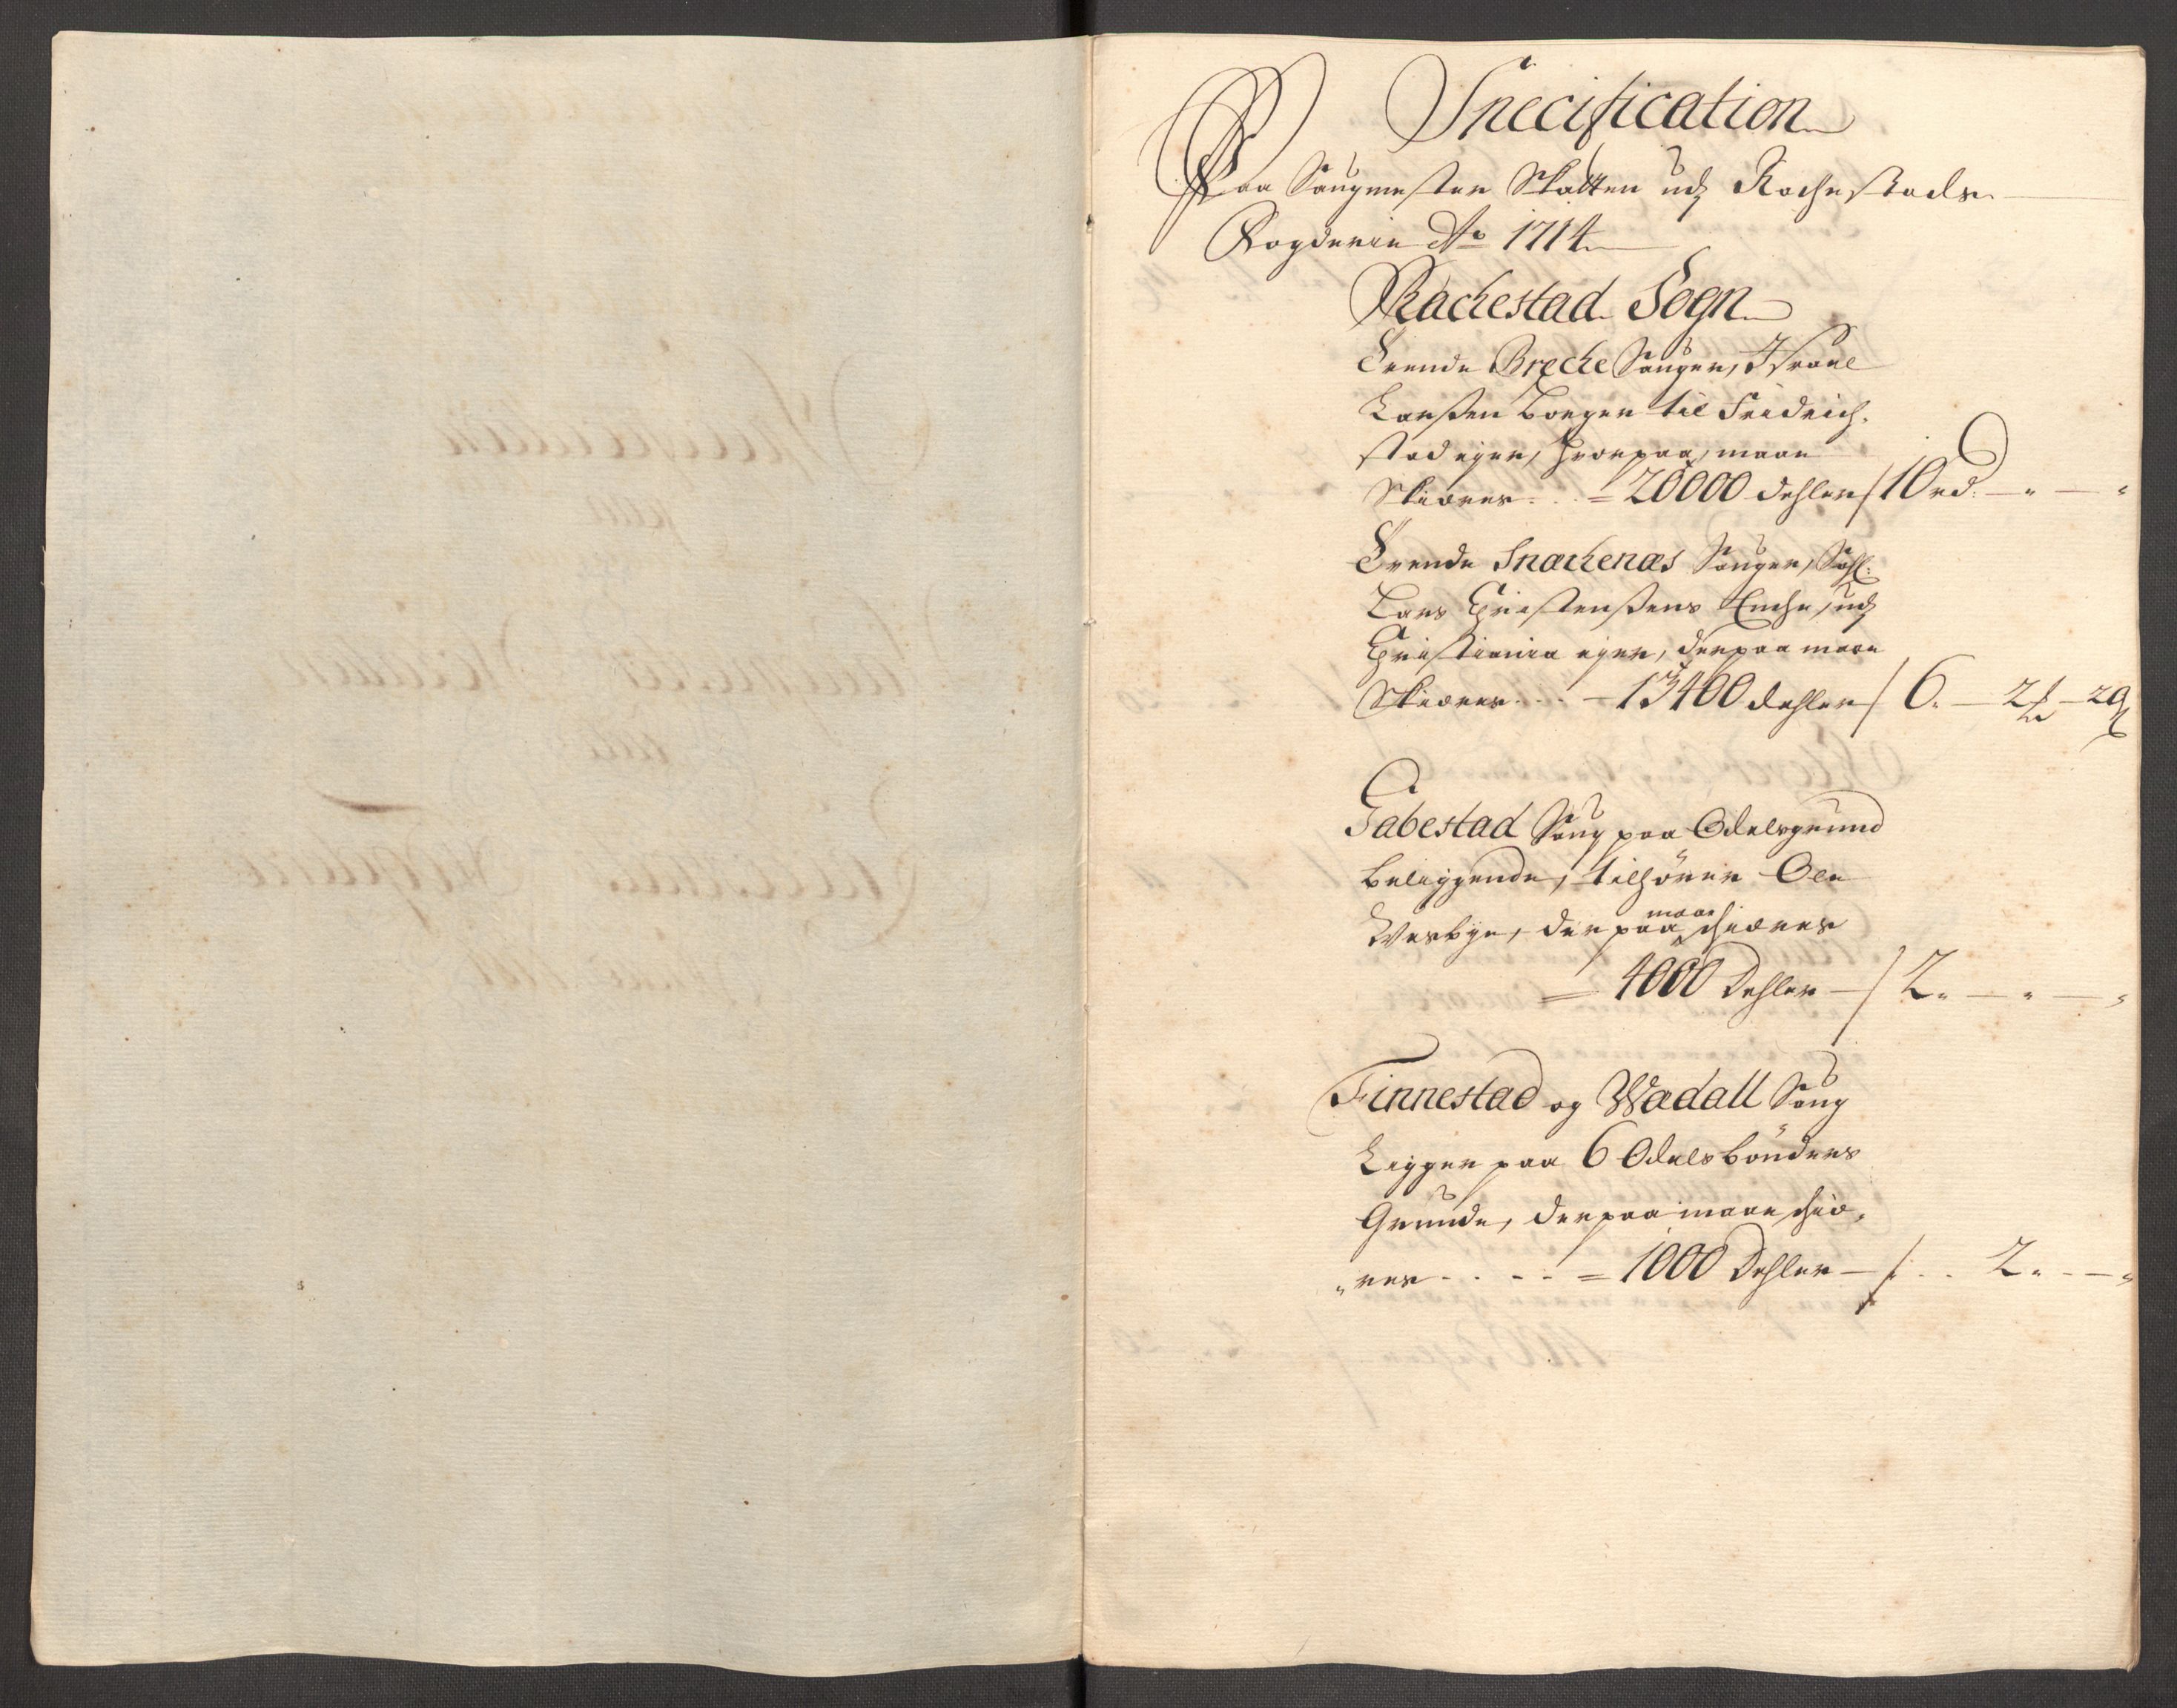 Specification
Paa Saugmester Skatten udj Rachestads
Fogderie Ao 1714
Rachestad Sogn
Tvende Breche Sauger, Israel
Larssen Borger til Fridrich-
stad eiger, hvorpaa maae
Skiæres . . = 20000 dehler / 10 rd. — " — "
Tvende Snachenæs Sauger, Sahl:
Lars Christenssens Enche, udj
Christiania eiger, derpaa maae
Skiæres . . . — 13400 dehler / 6. — 2 — 29
Tabestad Saug paa Odelsgrund
beliggende, tilhører Ole
Westbye, der paa maae schiæres
= 4000 Dehler — / 2. — " — "
Finnestad og Wædall Saug
Ligger paa 6 Odelsbønders
Grunde, derpaa maae schiæ-
"res . . . . = 1000 Dehler — / . . 2. — "